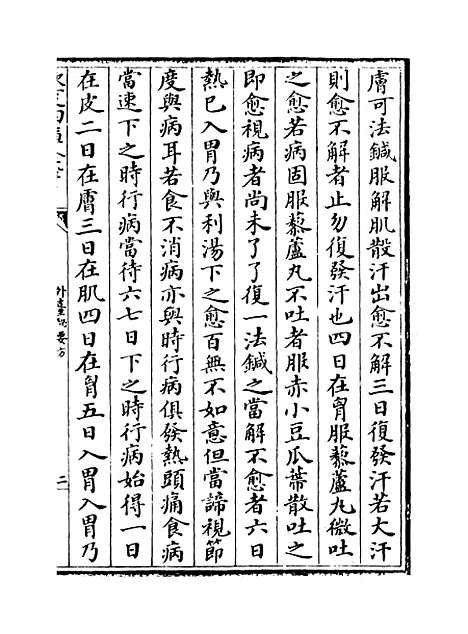 膚可法鍼服解肌散汗出愈不解三日復發汗若大汗
則愈不解者止勿復發汗也四日在胷服藜蘆丸微吐
之愈若病固服藜蘆丸不吐者服赤小豆瓜蒂散吐之
即愈視病者尚未了了復一法鍼之當解不愈者六日
熱已入胃乃與利湯下之愈百無不如意但當諦視節
度與病耳若食不消病亦與時行病俱發熱頭痛食病
當速下之時行病當待六七日下之時行病始得一日
在皮二日在膚三日在肌四日在胷五日入胃入胃乃
外臺祕要方
二